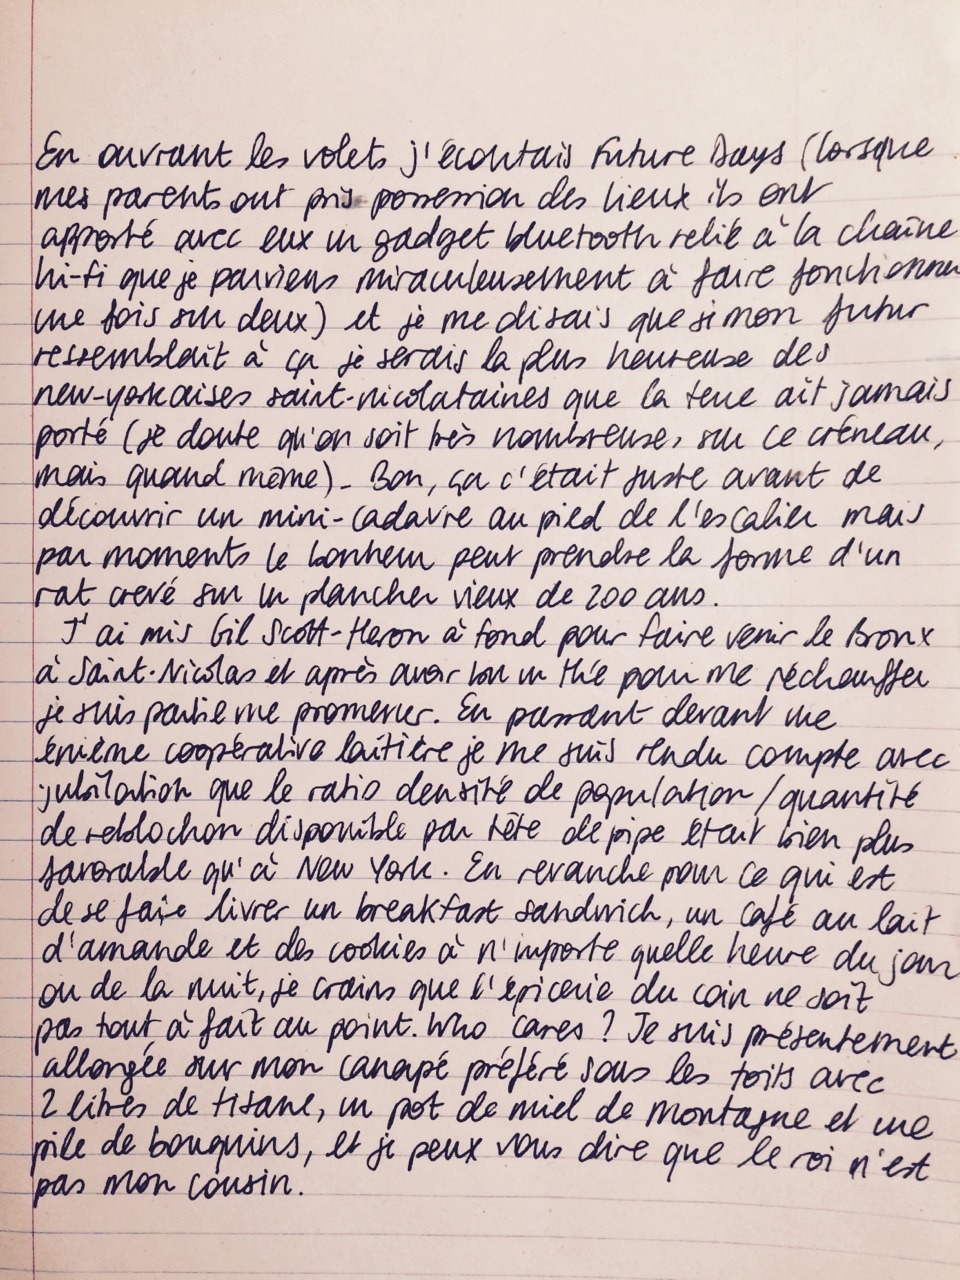 En ouvrant les volets j'écoutais Future Days (lorsque
mes parents ont pris possession des lieux ils ont
apporté avec eux un gadget bluetooth relié à la chaîne
hi-fi que je parviens miraculeusement à faire fonctionner
une fois sur deux) et je me disais que si mon futur
ressemblait à ça je serais la plus heureuse des
new-yorkaises saint-nicolataines que la terre ait jamais
porté (je doute qu'on soit très nombreuses sur ce créneau,
mais quand même). Bon, ça c'était juste avant de
découvrir un mini-cadavre au pied de l'escalier mais
par moments le bonheur peut prendre la forme d'un
rat crevé sur un plancher vieux de 200 ans.
J'ai mis Gil Scott-Heron à fond pour faire venir le Bronx
à Saint-Nicolas et après avoir bu un thé pour me réchauffer
je suis partie me promener. En passant devant une
énième coopérative laitière je me suis rendu compte avec
jubilation que le ratio densité de population/quantité
de reblochon disponible par tête de pipe était bien plus
favorable qu'à New York. En revanche pour ce qui est
de se faire livrer un breakfast sandwich, un café au lait
d'amande et des cookies à n'importe quelle heure du jour
ou de la nuit, je crains que l'épicerie du coin ne soit
pas tout à fait au point. Who cares ? Je suis présentement
allongée sur mon canapé préféré sous les toits avec
2 litres de tisane, un pot de miel de montagne et une
pile de bouquins, et je peux vous dire que le roi n'est
pas mon cousin.